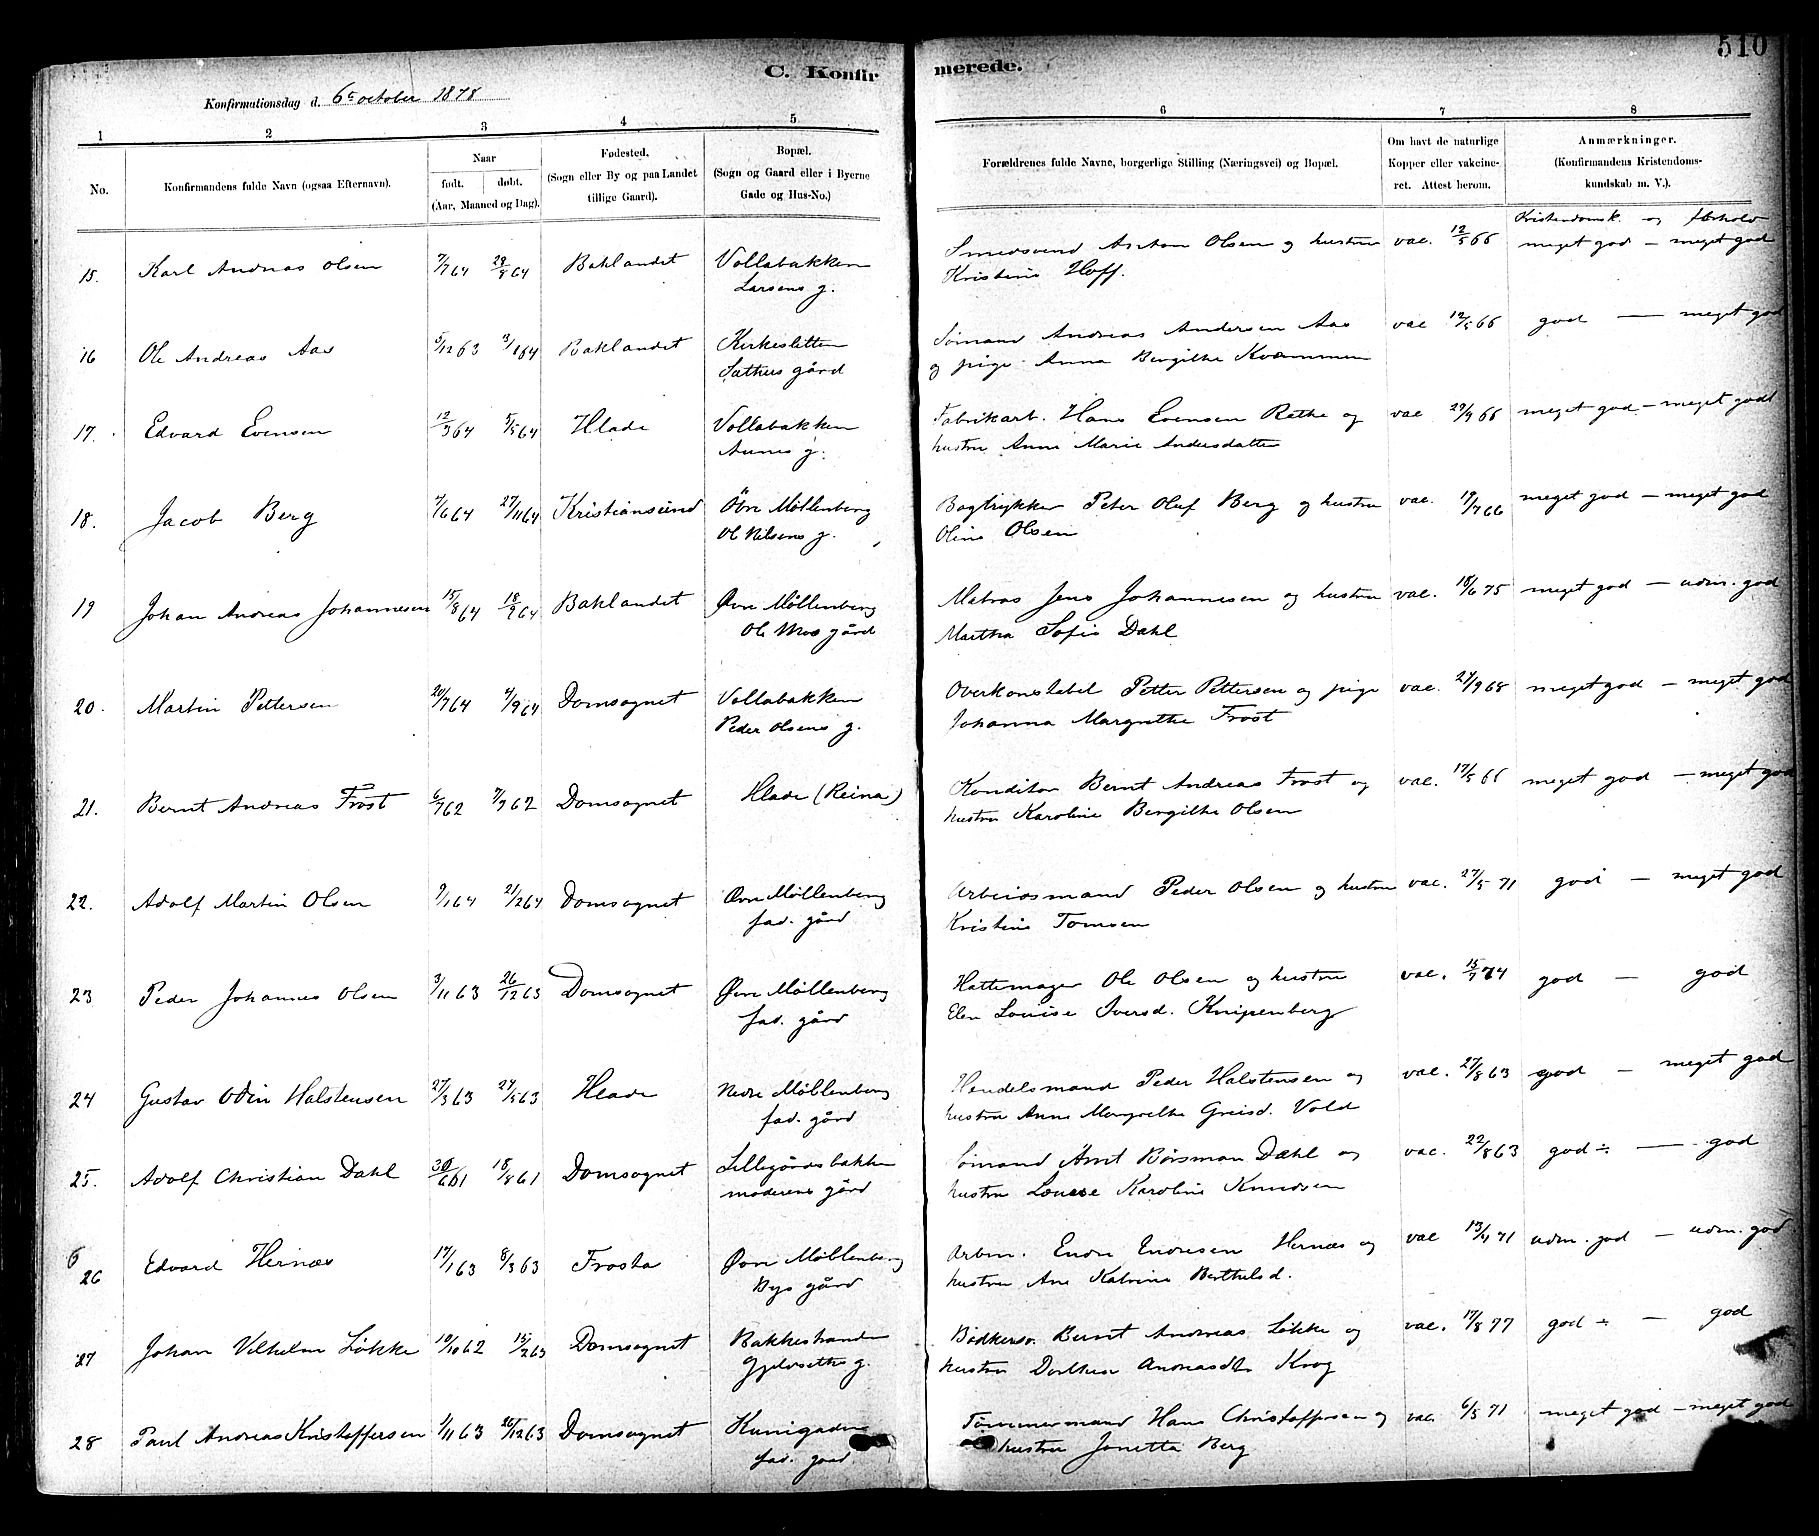 510
C. Konfirmerede.
Konfirmationsdag d. 6te october 1878
1 2 3 4 5 6 7 8
No.
Konfirmandens fulde Navn (ogsaa Efternavn).
Naar født. døbt. (Aar, Maaned og Dag).
Fødested. (Sogn eller By og paa Landet tillige Gaard).
Bopæl. (Sogn og Gaard eller i Byerne Gade og Hus-No.)
Forældrenes fulde Navne, borgerlige Stilling (Næringsvei) og Bopæl.
Om havt de naturlige Kopper eller vakcineret. Attest herom.
Anmærkninger. (Konfirmandens Kristendomskundskab m. V.).
Kristendomsk. og forhold
15. Karl Andreas Olsen 7/7 64 28/8 64 Baklandet Vollabakken Smedsvend Anton Olsen og hustru vac. 12/5 66 meget god – meget god
Larsens g. Kristine Hoff.
16 Ole Andreas Aas 5/12 63 3/1 64 Baklandet Kirkesletten Sømand Andreas Andersen Aas vac 12/5 66 god — meget god
Sæthers gård og pige Anna Bergithe Kvammen
17. Edvard Evensen 12/3 64 5/5 64 Hlade Vollabakken Fabrikarb. Hans Evensen Rathe og vac 29/9 66 meget god – meget godt
Aunes g. hustru Anne Marie Andersdatter
18. Jacob Berg 7/6 64 27/11 64 Kristiansund Övre Möllenberg Bogtrykker Peter Oluf Berg og hustru vac. 17/7 66 meget god – meget god
Ol Nilsens g. Oline Olsen
19 Johan Andreas Johannesen 15/8 64 18/9 64 Baklandet Øvre Möllenberg Matros Jens Johannesen og hustru vac. 18/6 75 meget god – udm. god
Ole Moe gård Martha Sofie Dahl
20. Martin Pettersen 20/7 64 4/9 64 Domsognet Vollabakken Overkonstabel Petter Pettersen og pige vac. 27/9 68 meget god – meget god
Peder Olsens g. Johanna Margrethe Frost
21. Bernt Andreas Frost 6/7 62 7/9 62 Domsognet Hlade (Reina) Konditor Bernt Andreas Frost og vac. 17/5 66 meget god – meget god
hustru Karoline Bergithe Olsen
22. Adolf Martin Olsen 9/1 64 21/2 64 Domsognet Øvre Möllenberg Arbeidsmand Peder Olsen og hustru vac. 27/5 71 god – meget god
fad. gård Kristine Tomsen
23 Peder Johannes Olsen 3/11 63 26/12 63 Domsognet Øvre Möllenberg Hattemager Ole Olsen og hustru vac. 15/7 74 god — god
fad. gård Elen Louise Iversd. Knipenberg
24 Gustav Odin Halstensen 27/3 63 24/5 63 Hlade Nedre Möllenberg Hendelsmand Peder Halstensen og vac. 27/8 63 god – meget god
fad. gård hustru Anne Margrethe Greisd. Vold
25. Adolf Christian Dahl 30/6 61 18/8 61 Domsognet Lillegårdsbakken Sømand Arnt Börsman Dahl og vac. 22/8 63 god ÷ — god
moderens gård hustru Louise Karoline Knudsen
26 Edvard Hernæs 17/1 63 8/3 63 Frosta Øvre Möllenberg Arbm. Endre Endresen Hernæs og vac 13/4 71 udm. god – udm. god
Bys gård hustru Ane Katrine Berthelsd.
27 Johan Vilhelm Løkke 19/10 62 15/2 63 Domsognet Bakkestranden Bødkersv. Bernt Andreas Løkke og vac. 17/8 77 god ÷ – god
Gjelvseths g. hustru Dorthea Andreasdtr Krog
28 Paul Andreas Kristoffersen 1/11 63 26/12 63 Domsognet Kunigaden Tömmermand Hans Christoffersen og vac. 6/5 71 meget god – meget god
fad. gaard hustru Jonetta Berg